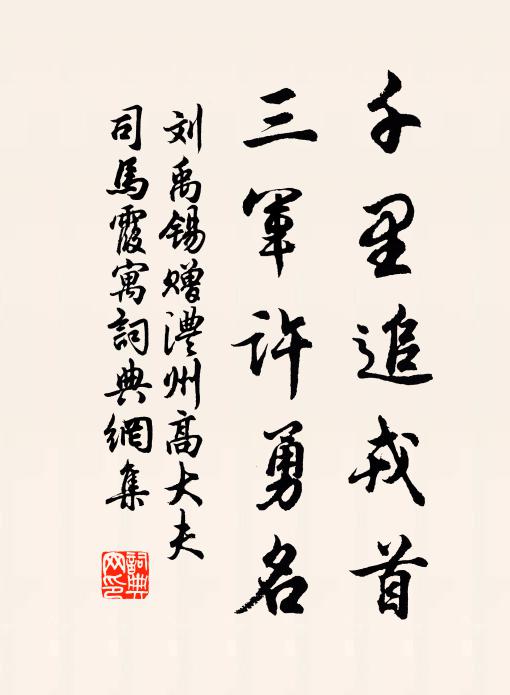 千里追戎首
三军许勇名
刘禹锡赠澧州高大夫
司馬霞寓詞典網集
詞典网印